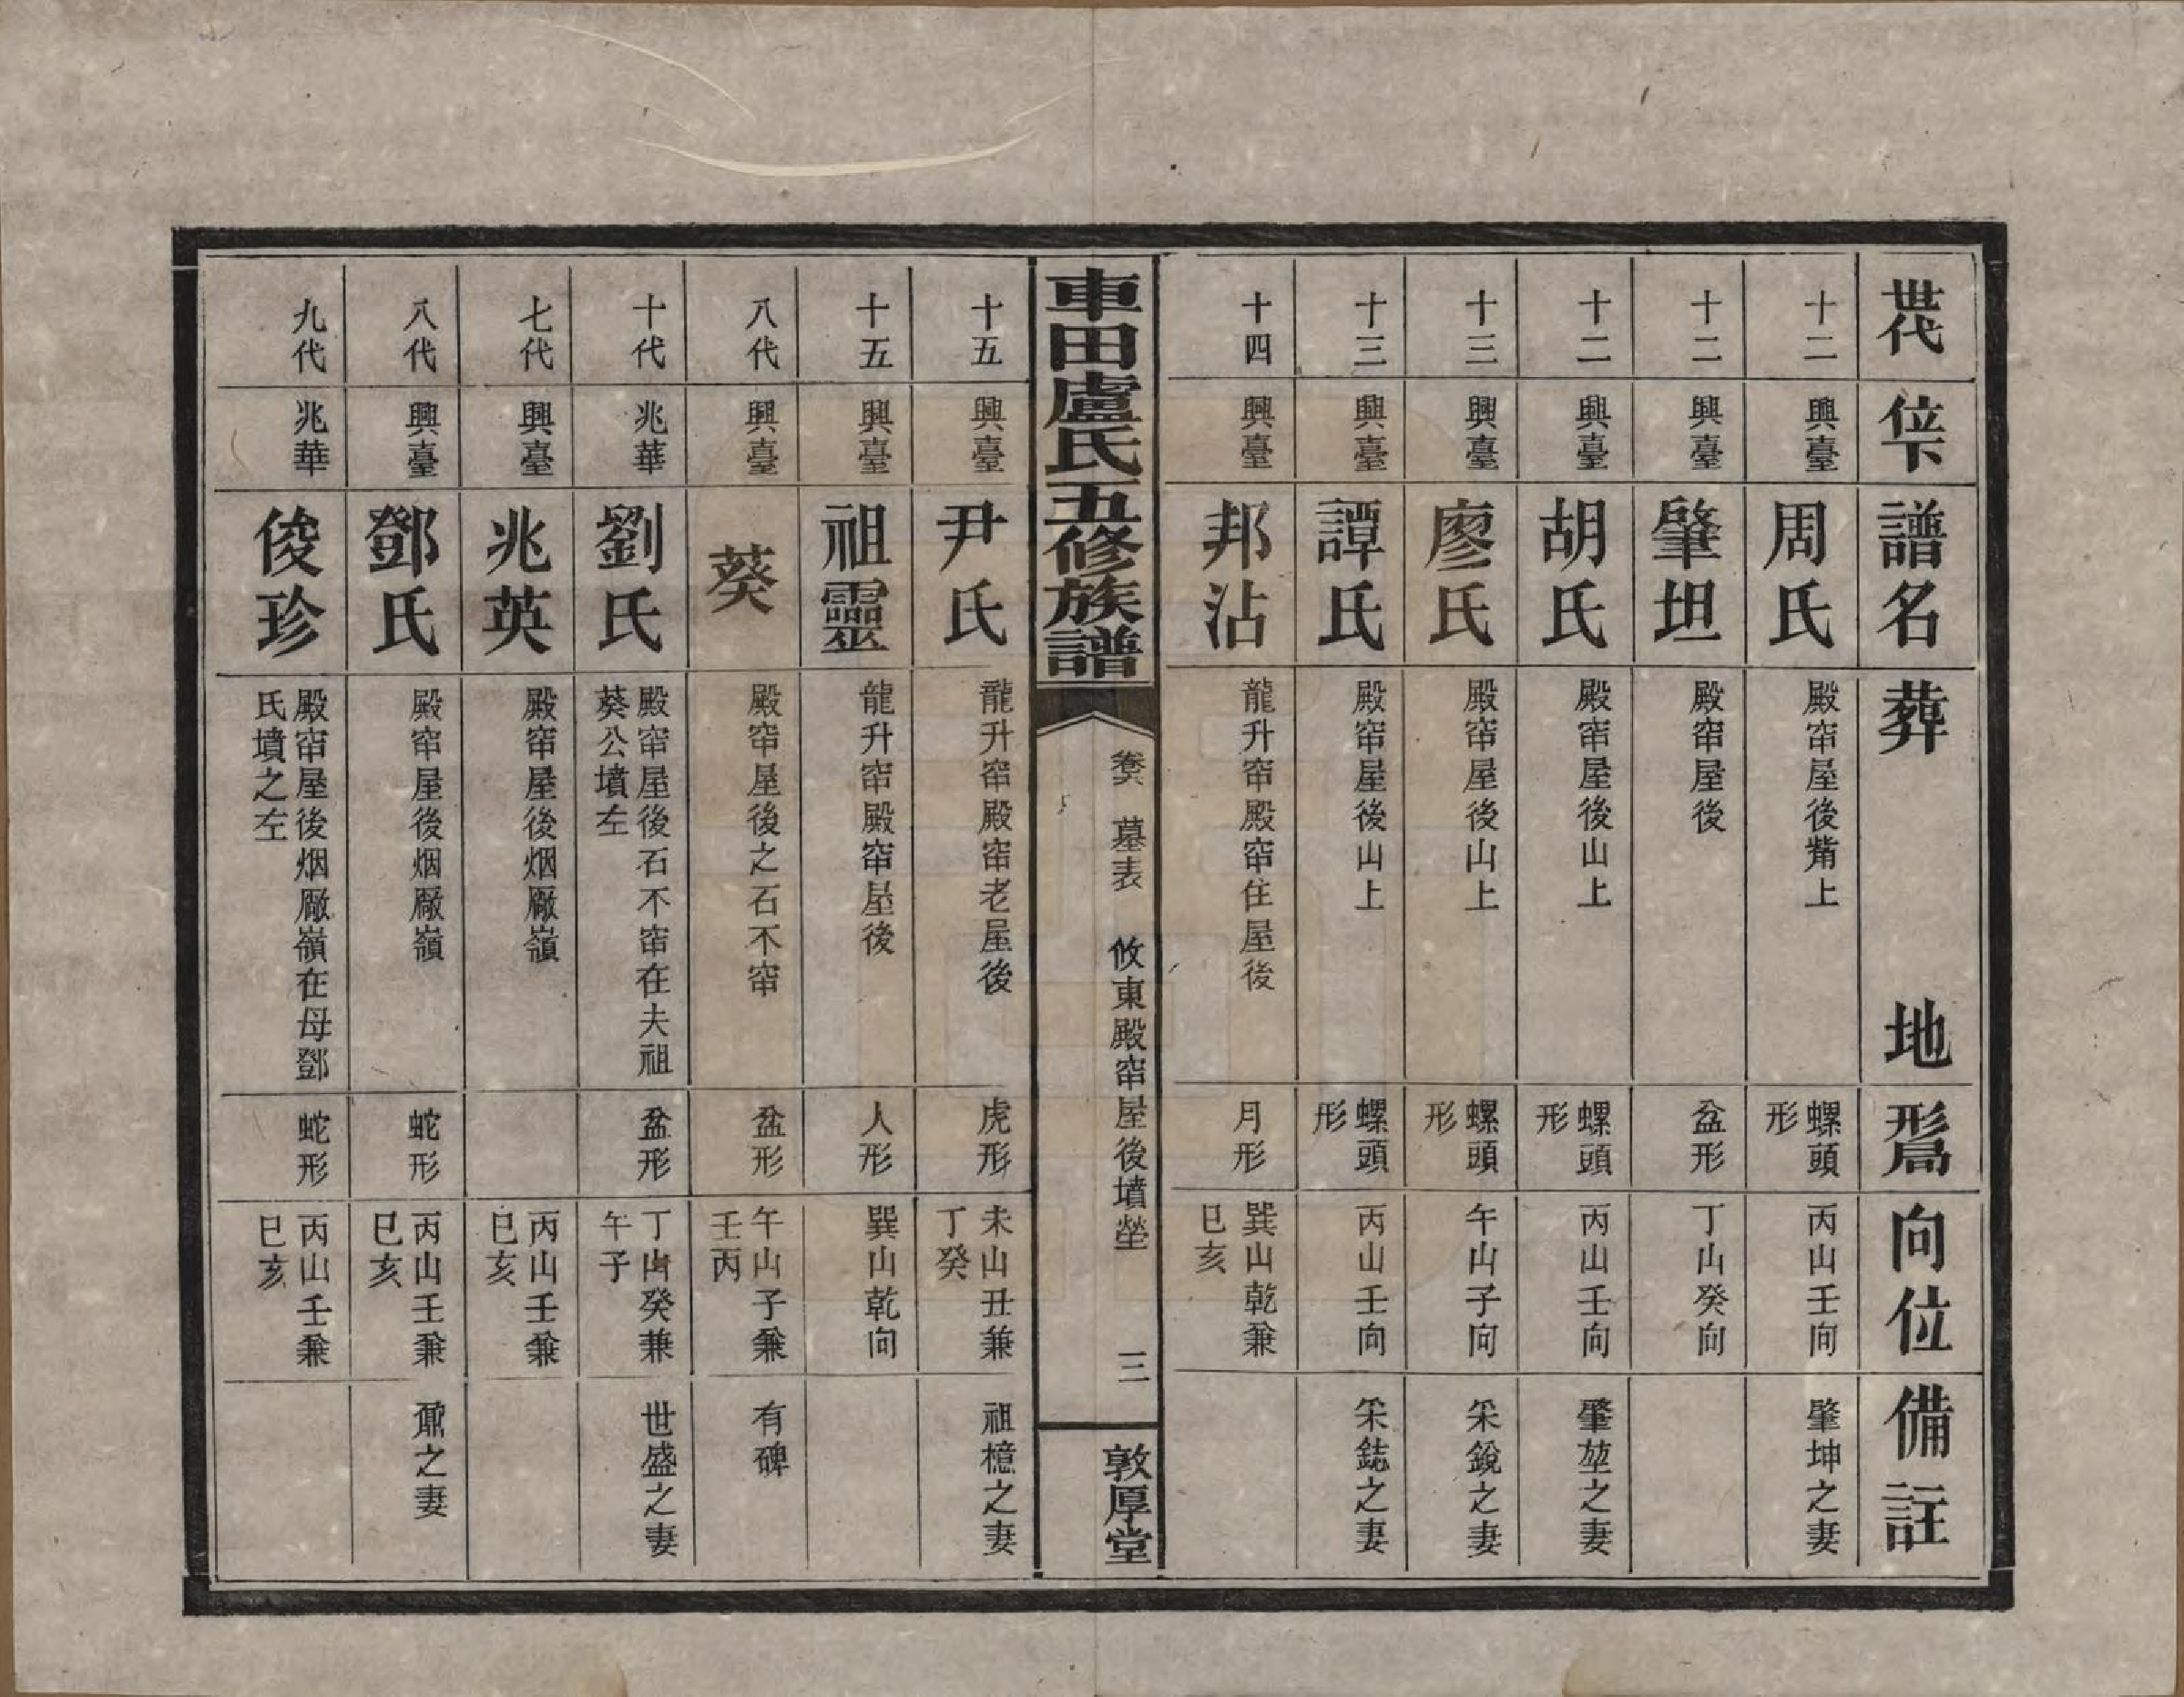 世代 位下 譜名 葬地 形舃 向位 備註
十二 興臺 周氏 殿窂屋後觜上 螺頭形 丙山壬向 肇坤之妻
十二 興臺 肇坦 殿窂屋後 盆形 丁山癸向
十二 興臺 胡氏 殿窂屋後山上 螺頭形 丙山壬向 肇堃之妻
十三 興臺 廖氏 殿窂屋後山上 螺頭形 午山子向 采銳之妻
十三 興臺 譚氏 殿窂屋後山上 螺頭形 丙山壬向 采鋕之妻
十四 興臺 邦沾 龍升窂殿窂住屋後 月形 巽山乾兼巳亥
車田盧氏五修族譜 卷六 墓表 攸東殿窂屋後墳塋 三 敦厚堂
十五 興臺 尹氏 龍升窂殿窂老屋後 虎形 未山丑兼丁癸 祖檍之妻
十五 興臺 祖靈 龍升窂殿窂屋後 人形 巽山乾向
八代 興臺 葵 殿窂屋後之石不窂 盆形 午山子兼壬丙 有碑
十代 兆華 劉氏 殿窂屋後石不窂在夫祖葵公墳左 盆形 丁山癸兼午子 世盛之妻
七代 興臺 兆英 殿窂屋後烟厰嶺 丙山壬兼巳亥
八代 興臺 鄧氏 殿窂屋後烟厰嶺 蛇形 丙山壬兼巳亥 鼐之妻
九代 兆華 俊珍 殿窂屋後烟厰嶺在母鄧氏墳之左 蛇形 丙山壬兼巳亥